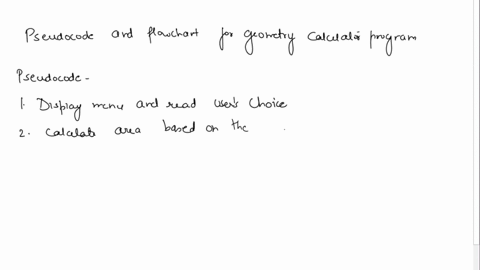 Pseudocode and flowchart for geometry Calculator program
Pseudocode -
1. Display menu and read user's Choice
2. Calculate area based on the